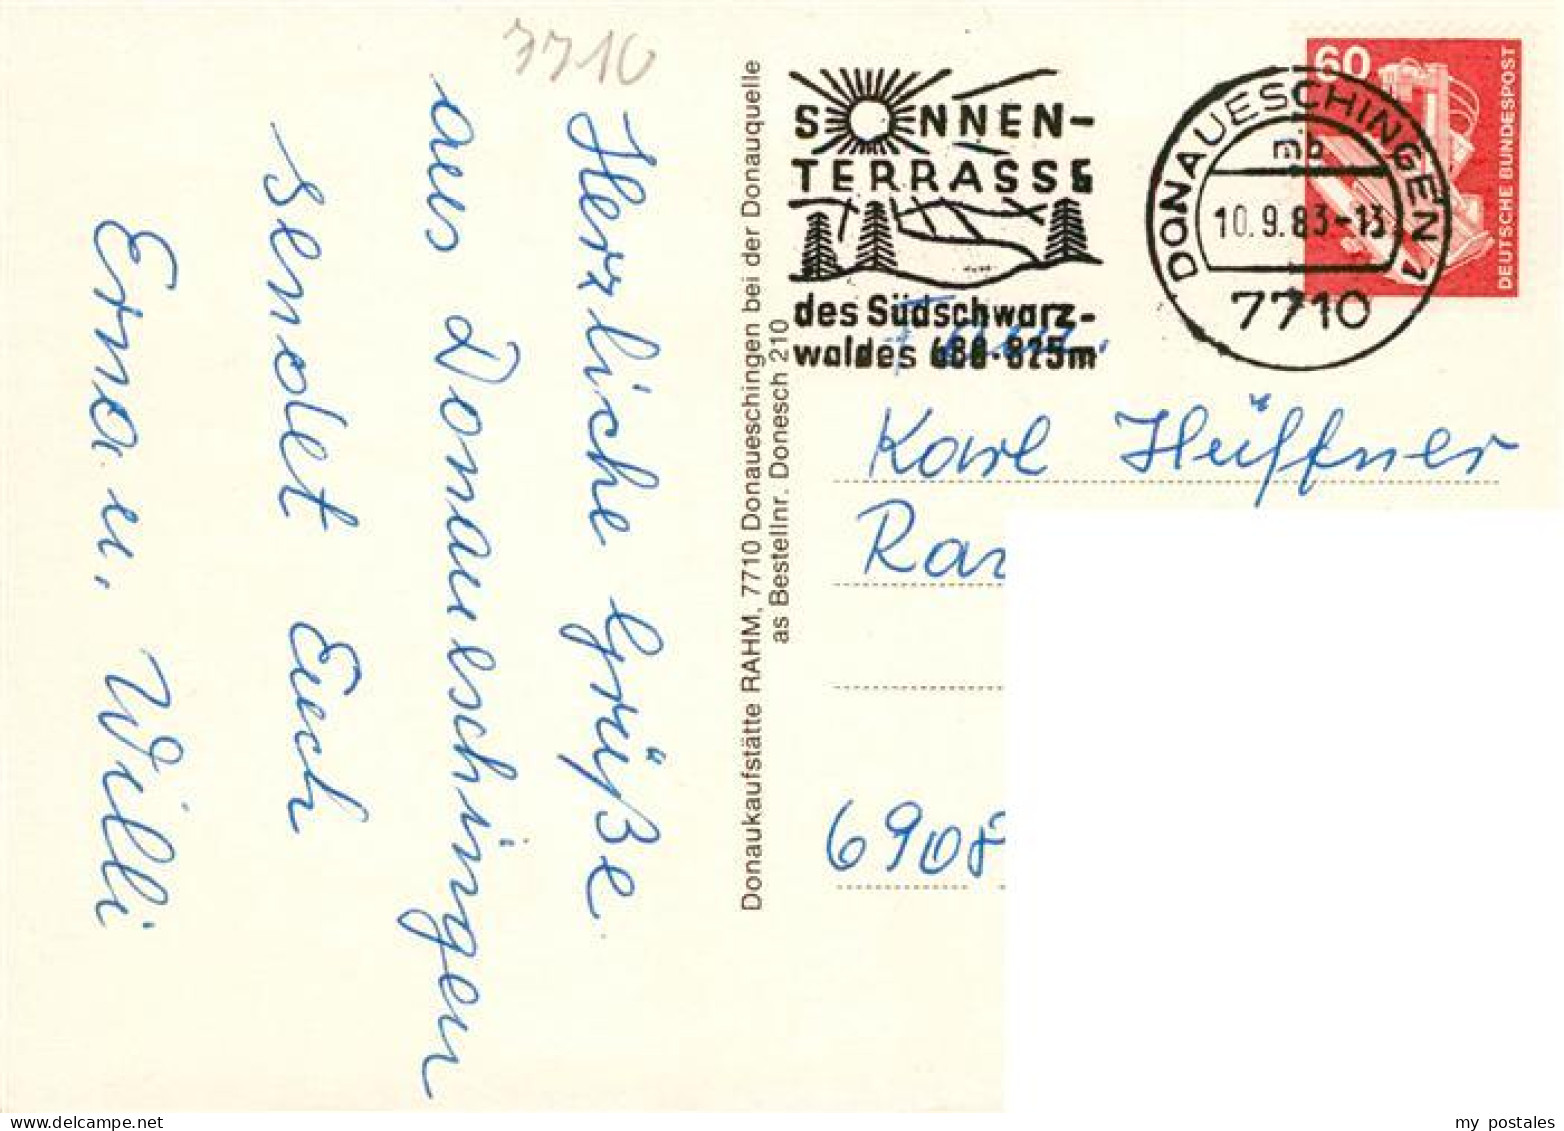 7710
Herzliche Grüße
aus Donaueschingen
sendet Euch
Erna u. Willi
Donaukaufstätte RAHM, 7710 Donaueschingen bei der Donauquelle
as Bestellnr. Donesch 210
SONNEN-
TERRASSE
des Südschwarz-
waldes
DONAUESCHINGEN 1
mb
10.9.83-13
7710
60
DEUTSCHE BUNDESPOST
Fam.
Karl Hüffner
6908
my postales